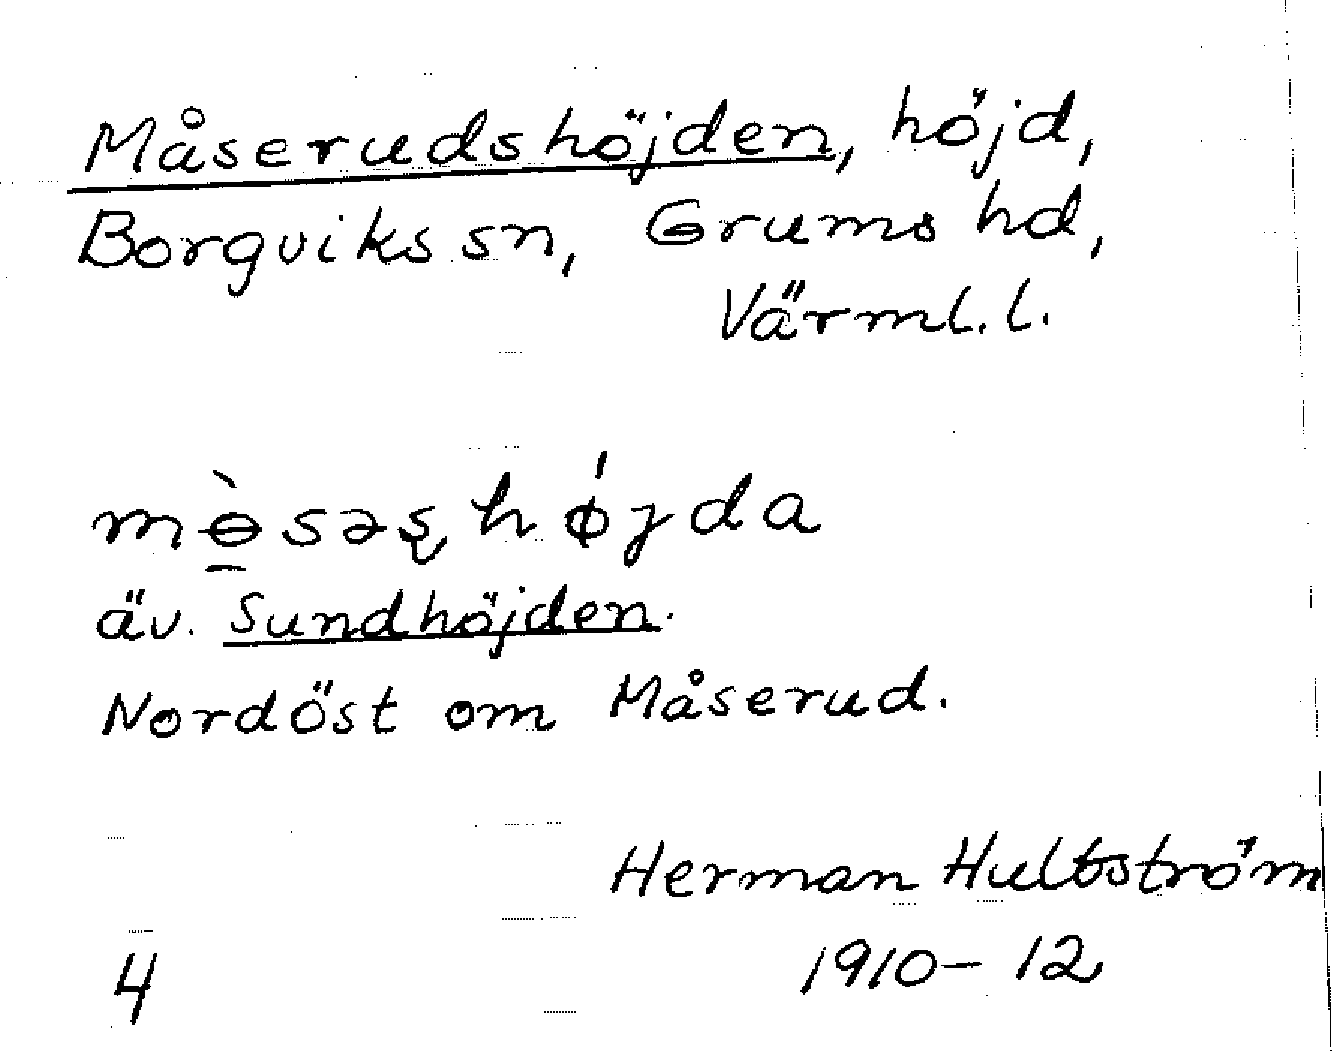 Måserudshöjden, höjd,
Borgviks sn, Grums hd,
Värml. l.
mɵ̱̀səʂ hǿɟda
äv. Sundhöjden.
Nordöst om Måserud.
Herman Hultström
1910-12
4